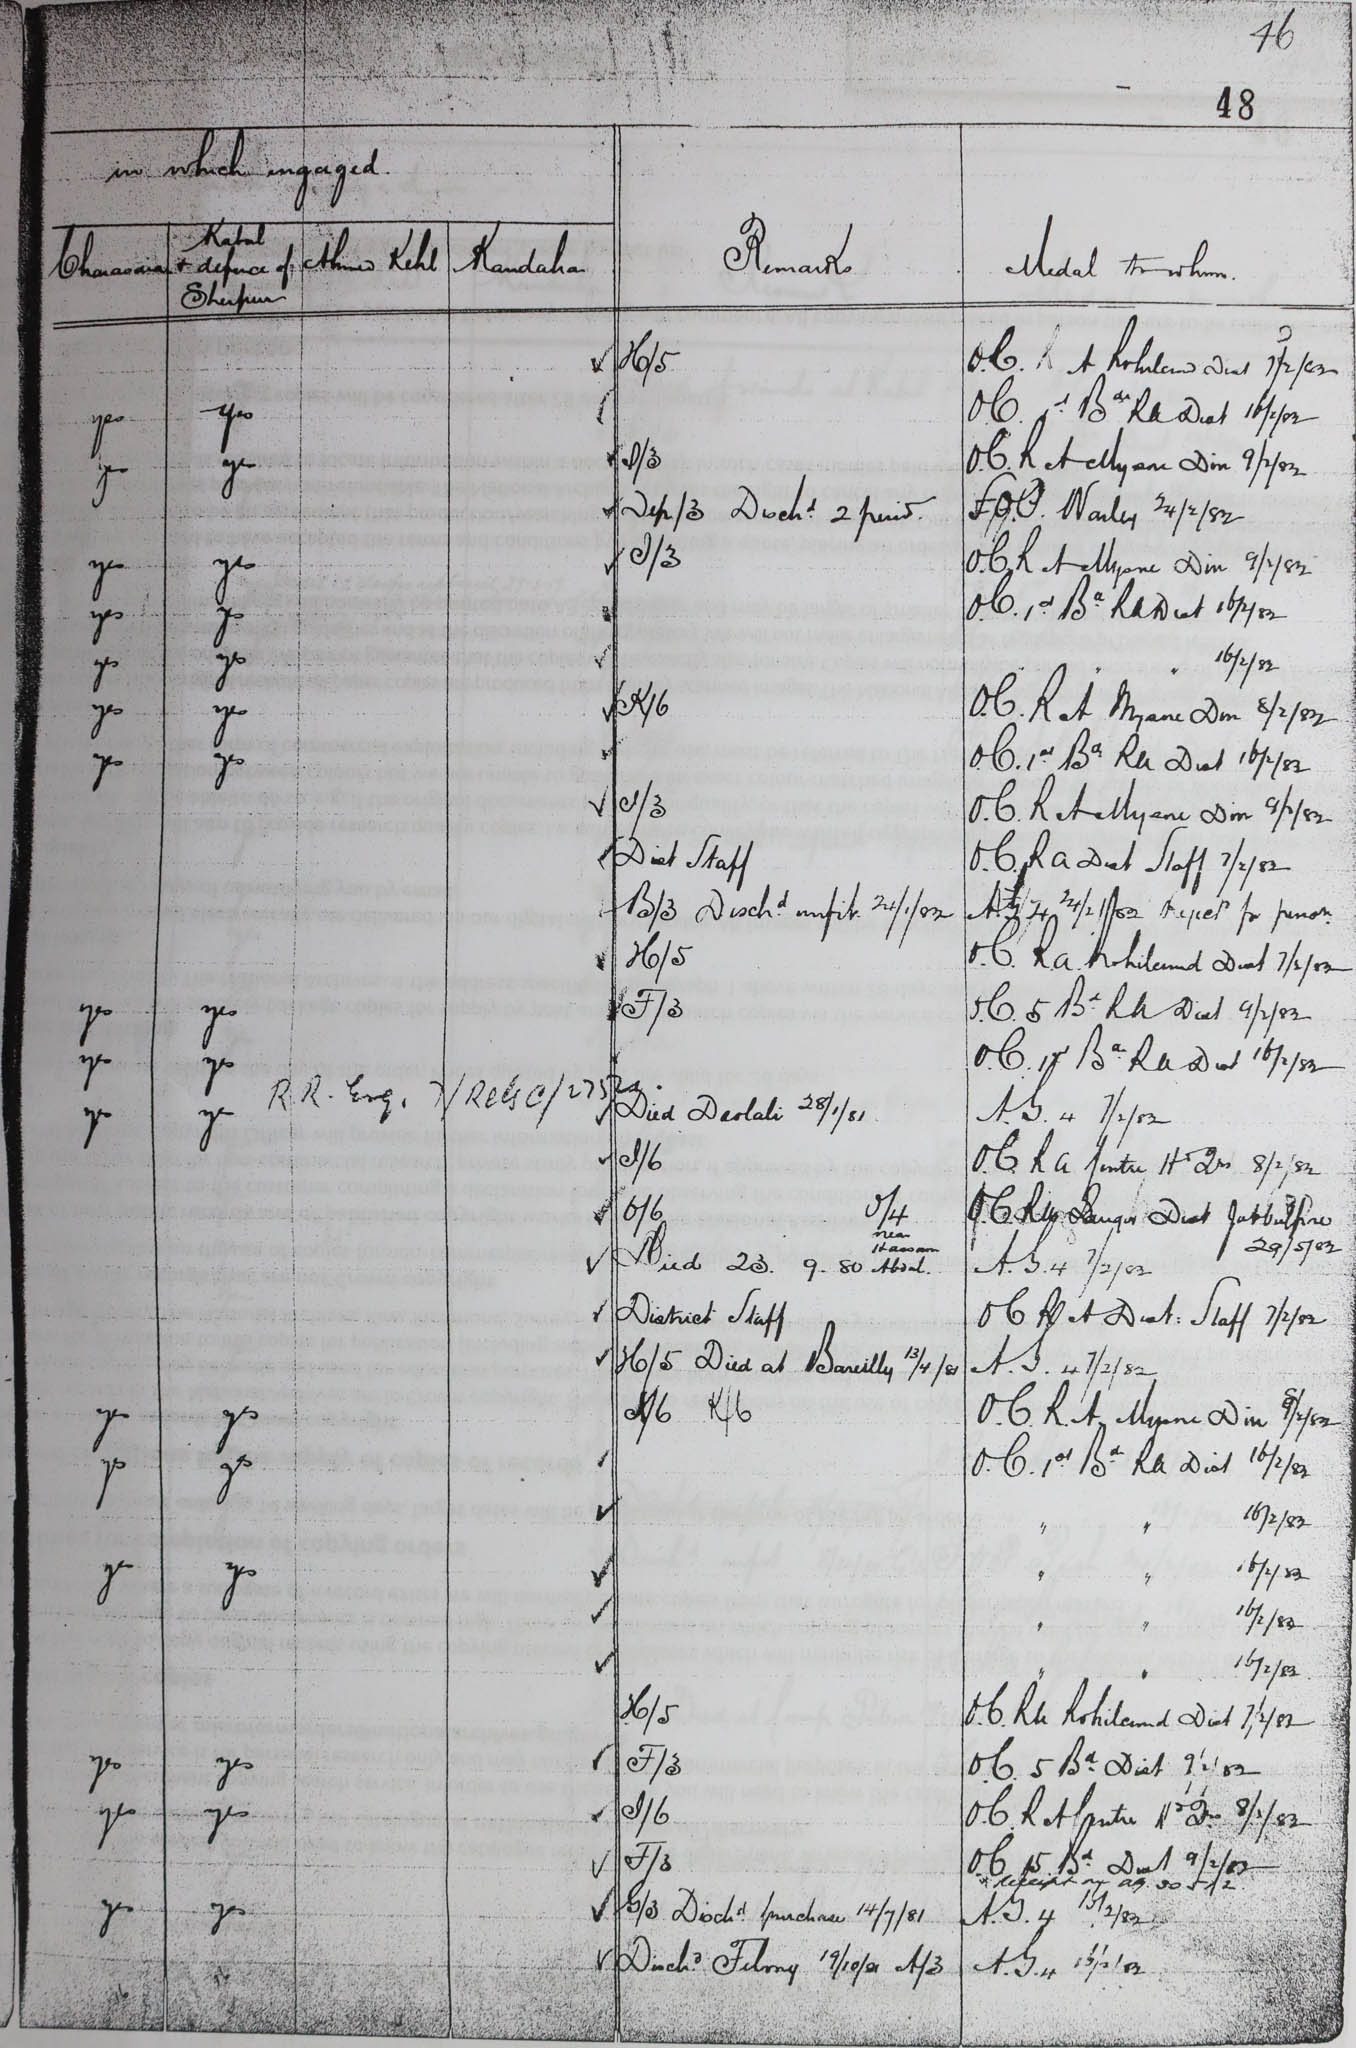 46
48
in which engaged.
Charasaia Kabul + defence of Sherpur Ahmed Kehl Kandahar Remarks Medal to whom.
✓ H/5 O.C. R A Rohilcund Dist 7/2/82
yes yes O.C. 1st Bde RA Dist 16/2/82
yes yes ✓ I/3 O.C. R A Mysore Divn 9/2/82
✓ Dep/3 Dischd 2 period. Warley 24/2/82
yes yes ✓ I/3 O.C. R A Mysore Divn 9/2/82
yes yes O.C. 1st Bde RA Dist 16/2/82
yes yes ✓ " " 16/2/82
yes yes ✓ K/6 O.C. R A Mysore Divn 8/2/82
yes yes O.C. 1st Bde RA Dist 16/2/82
✓ I/3 O.C. R A Mysore Divn 9/2/82
✓ Dist Staff O.C. R A Dist Staff 7/2/82
B/3 Dischd unfit 24/1/82
✓ H/5 O.C. R A Rohilcund Dist 7/2/82
yes yes ✓ F/3 O.C. 5 Bde RA Dist 9/2/82
yes yes O.C. 1st Bde RA Dist 16/2/82
R.R. Enq. 7/RegC/
yes yes ✓ Died Deolali 28/1/81 A.G. 4 7/2/82
✓ I/6 O.C. R A Centre Hd Qrs 8/2/82
✓ O/6 O/4 O.C. RA Saugor Dist Jubbulpore 29/5/82
✓ Died 23. 9. 80 near Hassan Abdal. A.G. 4 7/2/82
✓ District Staff O.C. R A Dist: Staff 7/2/82
✓ H/5 Died at Bareilly 13/4/81 A.G. 4 7/2/82
yes yes K/6 O.C. R.A. Mysore Divn 8/2/82
yes yes ✓ O.C. 1st Bde RA Dist 16/2/82
✓ " " 16/2/82
yes yes ✓ " " 16/2/82
✓ " " 16/2/82
✓ " " 16/2/82
H/5 O.C. RA Rohilcund Dist 7/2/82
yes yes ✓ F/3 O.C. 5 Bde Dist 9/2/82
yes yes ✓ I/6 O.C. R A Centre Hd Qrs 8/2/82
✓ F/3 O.C. 5 Bde Dist 9/2/82
yes yes ✓ G/3 Dischd purchase 14/7/81 A.G. 4 15/2/82
✓ Dischd Felony 19/10/81 A/3 A.G. 4